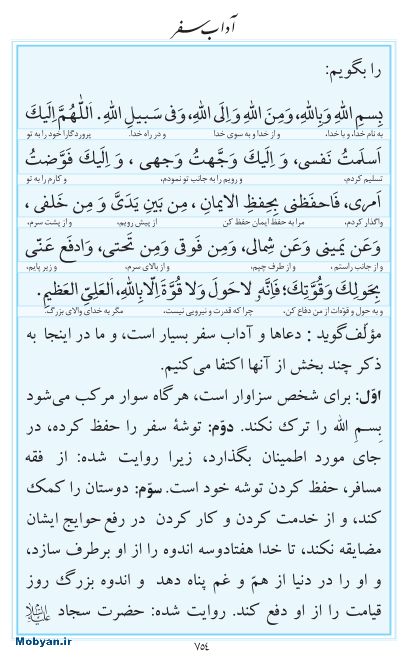 آداب سفر
را بگویم:
بِسمِ اللهِ وَبِاللهِ، وَمِنَ اللهِ وَاِلَی اللهِ، وَفی سَبیلِ اللهِ. اَللّٰهُمَّ اِلَیكَ
به نام خدا، و با خدا، و از خدا و به سوی خدا و در راه خدا. پروردگارا خود را به تو
اَسلَمتُ نَفسی، وَ اِلَیكَ وَجَّهتُ وَجهی ، وَ اِلَیكَ فَوَّضتُ
تسلیم کردم، و رویم را به جانب تو نمودم، و کارم را به تو
اَمری، فَاحفَظنی بِحِفظِ الایمانِ ، مِن بَینِ یَدَیَّ وَ مِن خَلفی ،
واگذار کردم، مرا به حفظ ایمان حفظ کن از پیش رویم، و از پشت سرم،
وَ عَن یَمینی وَعَن شِمالی، وَمِن فَوقی وَمِن تَحتی، وَادفَع عَنّی
و از جانب راستم ، و از طرف چپم، و از بالای سرم، و زیر پایم،
بِحَولِكَ وَ قُوَّتِكَ؛ فَاِنَّهُ لاحَولَ وَلا قُوَّةَ اِلّا بِاللهِ، اَلعَلِیِّ العَظیمِ.
و به حول و قوّه‌ات از من دفاع کن. چرا که قدرت و نیرویی نیست، مگر به خدای والای بزرگ.
مؤلّف‌گوید : دعاها و آداب سفر بسیار است، و ما در اینجا به
ذکر چند بخش از آنها اکتفا می‌کنیم.
اوّل: برای شخص سزاوار است، هرگاه سوار مرکب می‌شود
بِسمِ الله را ترك نکند. دوّم: توشهٔ سفر را حفظ کرده، در
جای مورد اطمینان بگذارد، زیرا روایت شده: از فقه
مسافر، حفظ کردن توشه خود است. سوّم: دوستان را کمك
کند، و از خدمت کردن و کار کردن در رفع حوایج ایشان
مضایقه نکند، تا خدا هفتادوسه اندوه را از او برطرف سازد،
و او را در دنیا از همّ و غم پناه دهد و اندوه بزرگ روز
قیامت را از او دفع کند. روایت شده: حضرت سجاد علیه‌السلام
٧٥٤
Mobyan.ir